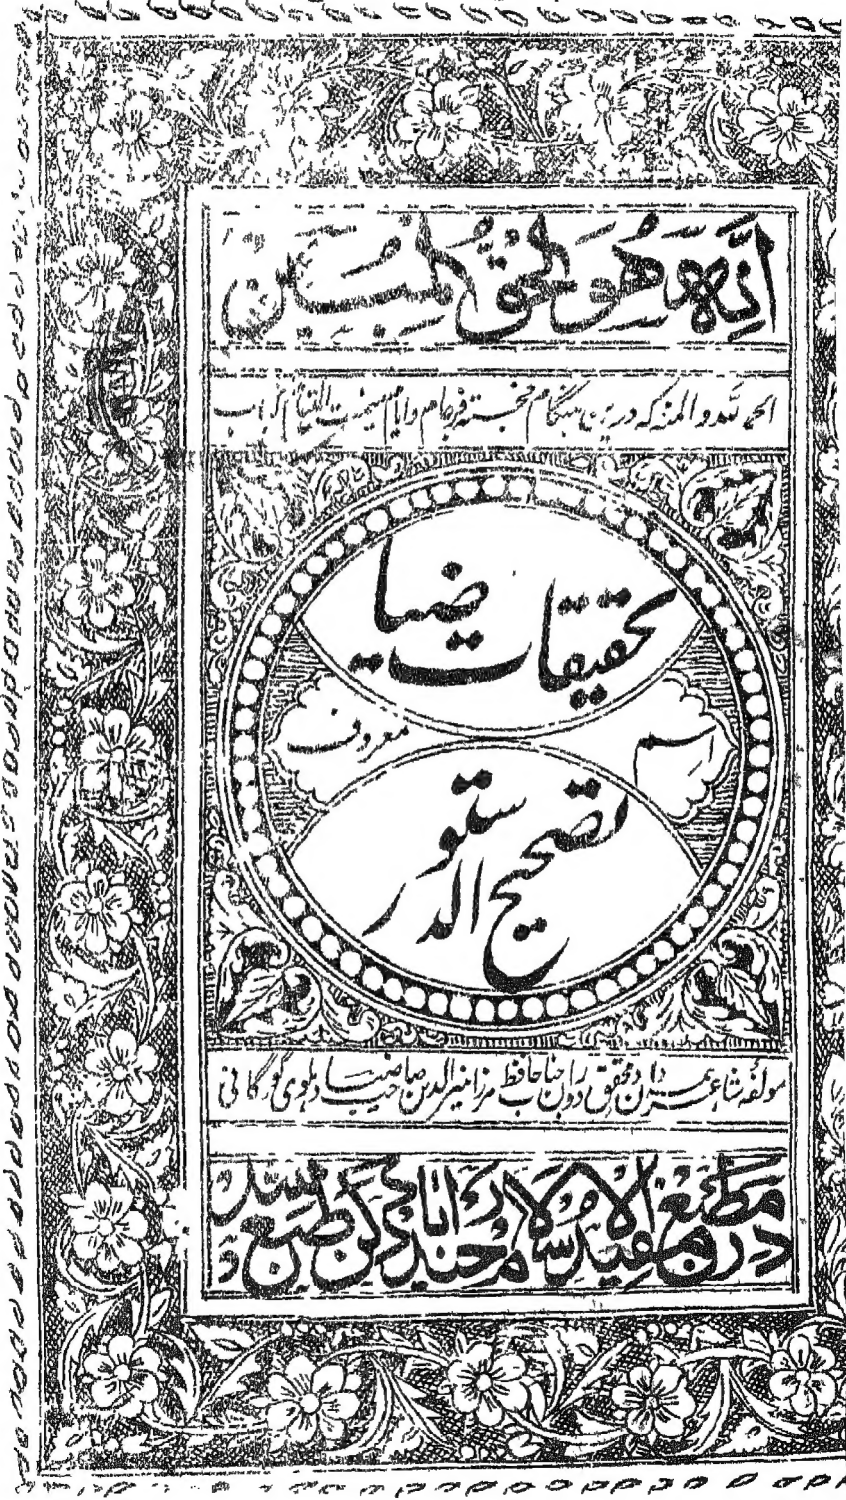 انّه هُوَ الحقُّ المُبین
الحمد للہ والمنہ کہ درین ہنگام خجستہ فرجام وایام میمنت التیام کتاب
تحقیقات ضیا
اسم معروف
تصحیح الدستور
مولفہ شاعر ہمہ دان و محقق دوران جناب حافظ مرزا منیر الدین صاحب ضیا دہلوی گورگانی
در مطبع مفید الاسلام حیدرآباد دکن طبع شد